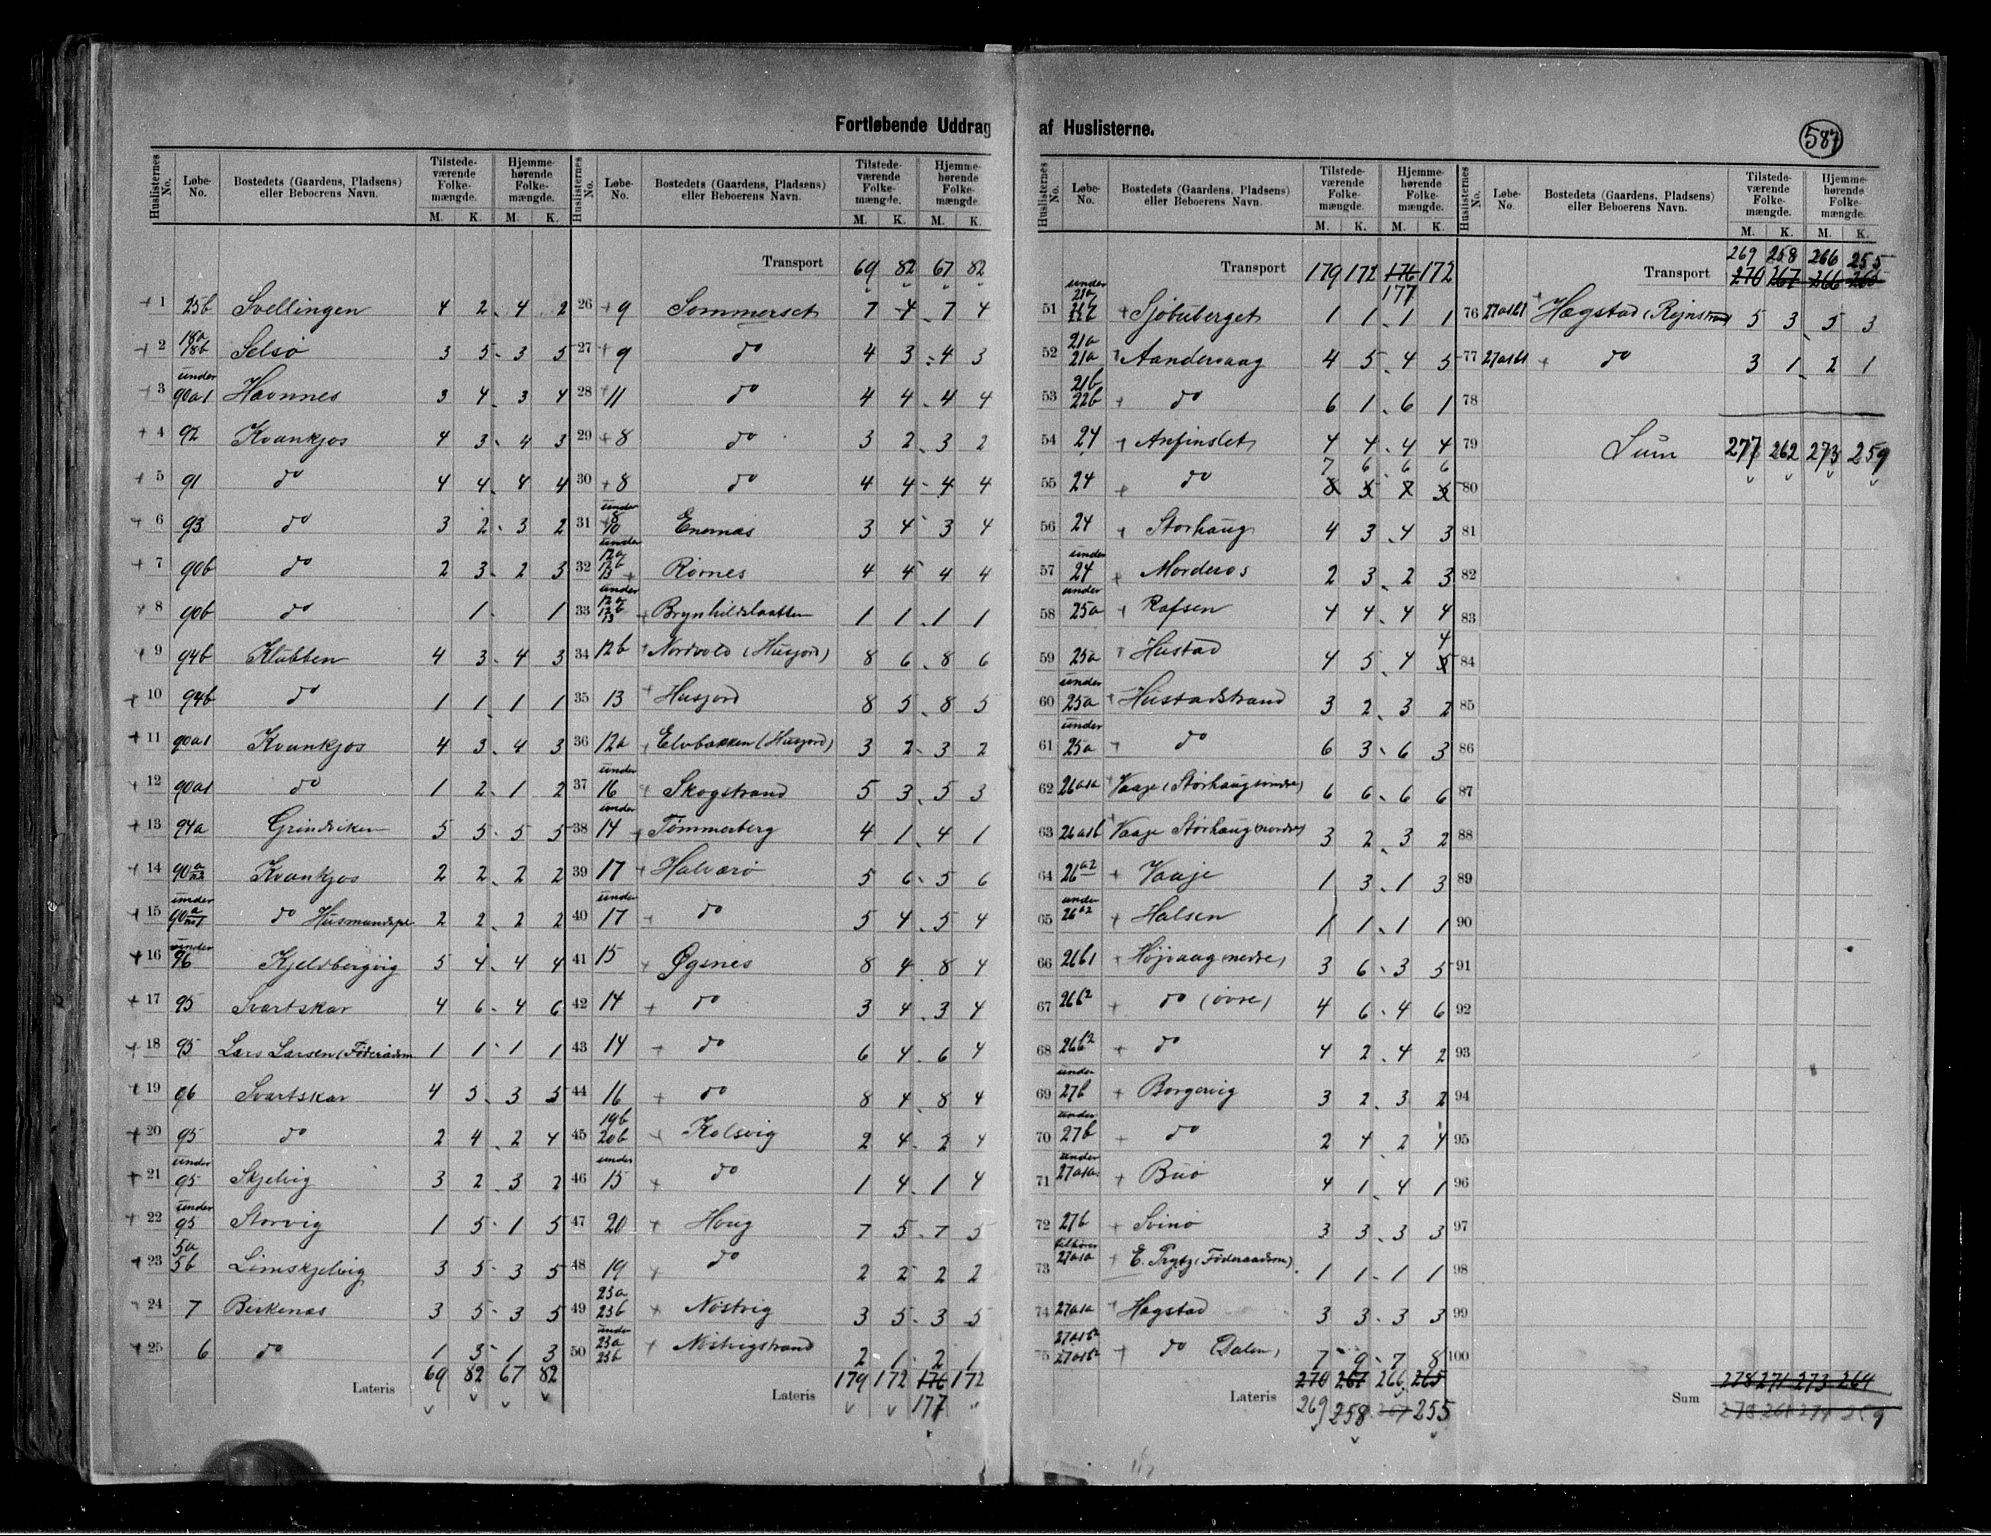 Fortløbende Uddrag af Huslisterne.
587
Huslisternes No. Løbe-No. Bostedets (Gaardens, Pladsens) eller Beboerens Navn. Tilstedeværende Folkemængde. M. K. Hjemmehørende Folkemængde. M. K.
1 25b Svellingen 4 2 4 2
2 18a 18b Selsö 3 5 3 5
3 under 90a1 Havnnes 3 4 3 4
4 92 Kvankjos 4 3 4 3
5 91 do 4 4 4 4
6 93 do 3 2 3 2
7 90b do 2 3 2 3
8 90b do 1 1
9 94b Klubben 4 3 4 3
10 94b do 1 1 1 1
11 90a1 Kvankjos 4 3 4 3
12 90a1 do 1 2 1 2
13 94a Grindviken 5 5 5 5
14 90a a2 Kvankjos 2 2 2 2
15 under 90a a1 do Husmandspl 2 2 2 2
16 under 96 Kjeldbergvig 5 4 4 4
17 95 Svartskar 4 6 4 6
18 95 Lars Larsen (Föderaadsm 1 1 1 1
19 96 Svartskar 4 5 3 5
20 95 do 2 4 2 4
21 under 95 Skjelvig 3 2 3 2
22 under 95 Storvig 1 5 1 5
23 5a 5b Limskjelvig 3 5 3 5
24 7 Birkenæs 3 5 3 5
25 6 do 1 3 1 3
Lateris 69 82 67 82
Huslisternes No. Løbe-No. Bostedets (Gaardens, Pladsens) eller Beboerens Navn. Tilstedeværende Folkemængde. M. K. Hjemmehørende Folkemængde. M. K.
Transport 69 82 67 82
26 9 Sommerset 7 4 7 4
27 9 do 4 3 4 3
28 11 do 4 4 4 4
29 8 do 3 2 3 2
30 8 do 4 4 4 4
31 under 8 10 Enernæs 3 4 3 4
32 under 12a 12b 13 Rörnes 4 4 4 4
33 under 12a 12b 13 Brynhildslaatten 1 1 1 1
34 12b Nordvold (Husjord) 8 6 8 6
35 13 Husjord 8 5 8 5
36 12a Elvbakken (Husjord) 3 2 3 2
37 under 16 Skogstrand 5 3 5 3
38 under 14 Tömmerberg 4 1 4 1
39 17 Halværö 5 6 5 6
40 under 17 do 5 4 5 4
41 15 Øgsnes 8 4 8 4
42 14 do 3 4 3 4
43 14 do 6 4 6 4
44 16 do 8 4 8 4
45 19b 20b Kolsvig 2 4 2 4
46 under 15 do 1 4 1 4
47 20 Houg 7 5 7 5
48 19 do 2 2 2 2
49 23a 23b Nöstvig 3 5 3 5
50 under 23a 23b Nöstvigstrand 2 1 2 1
Lateris 179 172 176 172
177
Huslisternes No. Løbe-No. Bostedets (Gaardens, Pladsens) eller Beboerens Navn. Tilstedeværende Folkemængde. M. K. Hjemmehørende Folkemængde. M. K.
Transport 179 172 176 172
177
51 under 21a Sjöbuberget 1 1 1 1
52 21a 21a Aandervaag 4 5 4 5
53 21b 22b do 6 1 6 1
54 24 Anfinslet 4 4 4 4
7 6 6 6
55 24 do 8 5 7 5
56 24 Storhaug 4 3 4 3
57 under 24 2 3 2 3
58 under 25a Rafsen 4 4 4 4
4
59 25a Hustad 4 5 4 5
60 under 25a Hustadstrand 3 2 3 2
61 under 25a do 6 3 6 3
62 26a1a Vaaje (Störhaug 6 6 6 6
63 26a1b Vaaje Störhaug nordre 3 2 3 2
64 26a2 Vaaje 1 3 1 3
65 under 26a2 Halsen 1 1 1 1
66 26b1 Höjvaag nedre 3 6 3 5
67 26b2 do (övre) 4 6 4 6
68 26b2 do 4 2 4 2
69 under 27b Borgervig 3 2 3 2
70 under 27b do 2 4 2 4
71 under 27a1a Buö 4 1 4 1
72 27b Svinö 3 3 3 3
73 27a1a E. Prytz (Föderaadsm) 1 1 1 1
74 27a1a Hagstad 3 3 3 3
75 27a1b2 27a1b2 do Dalen 7 9 7 8
Lateris 270 267 266 265
269 258 267 255
Huslisternes No. Løbe-No. Bostedets (Gaardens, Pladsens) eller Beboerens Navn. Tilstedeværende Folkemængde. M. K. Hjemmehørende Folkemængde. M. K.
269 258 266 255
Transport 270 267 266 265
76 27a1b1 Hagstad 5 3 5 3
77 27a1b1 do 3 1 2 1
78
79 Sum 277 262 273 259
80
81
82
83
84
85
86
87
88
89
90
91
92
93
94
95
96
97
98
99
100
278 271 273 264
Sum